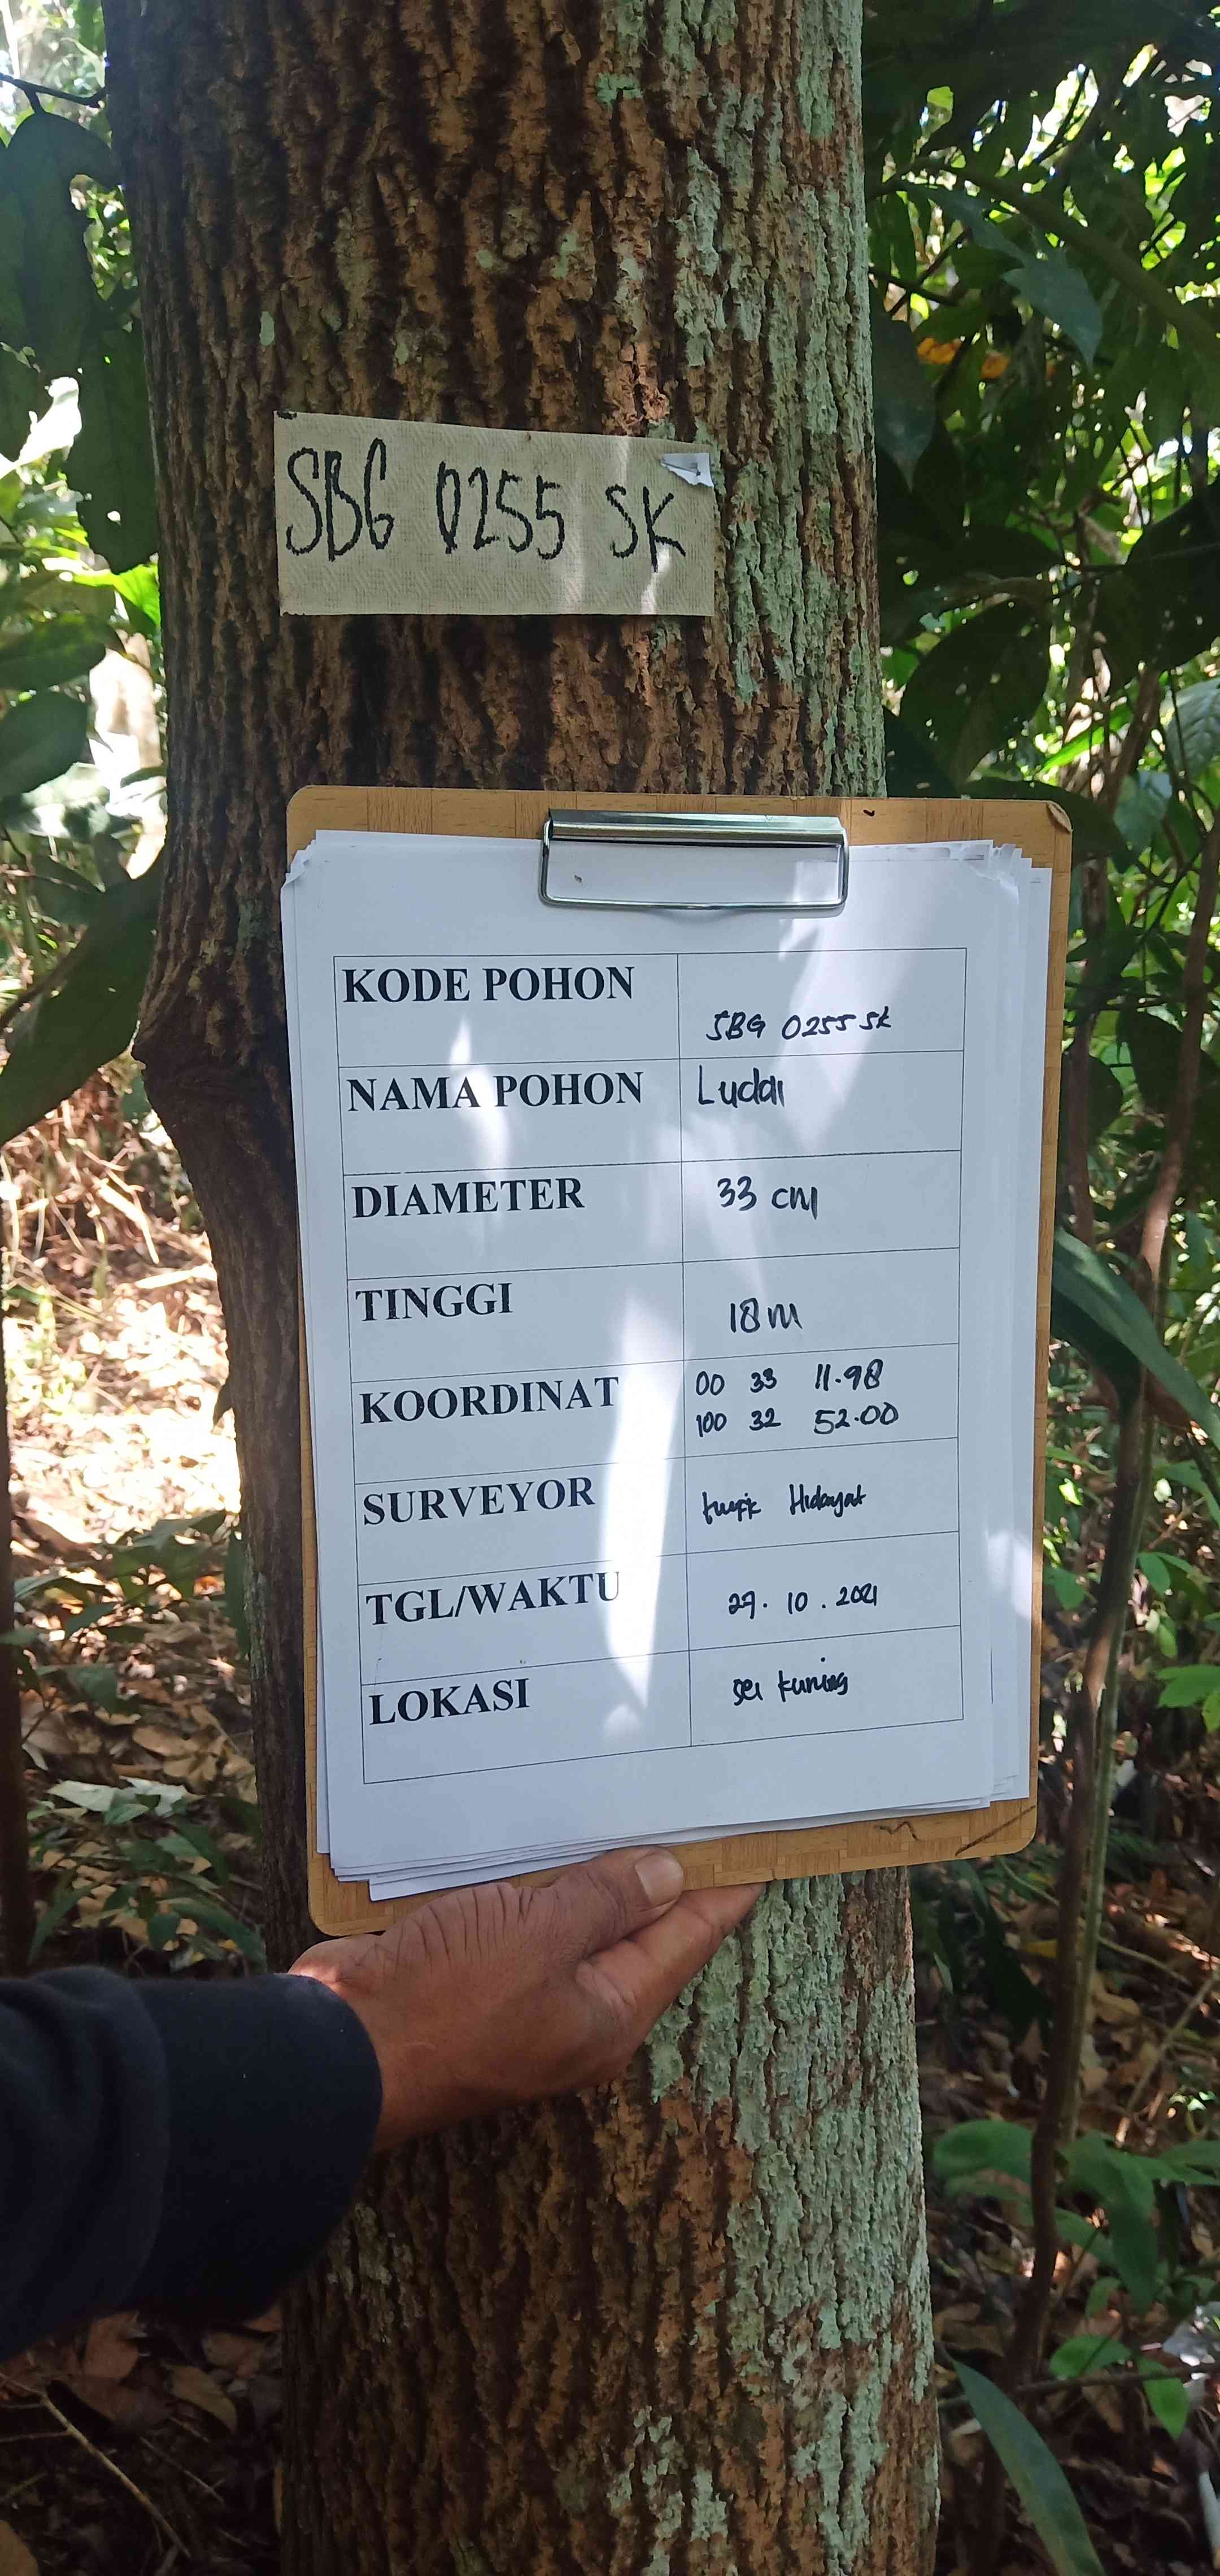 SBG 0255 SK
KODE POHON
SBG 0255 SK
NAMA POHON
Ludai
DIAMETER
33 cm
TINGGI
18 m
KOORDINAT
00 33 11.98
100 32 52.00
SURVEYOR
Hidayat
TGL/WAKTU
10 . 2021
LOKASI
sei kuning